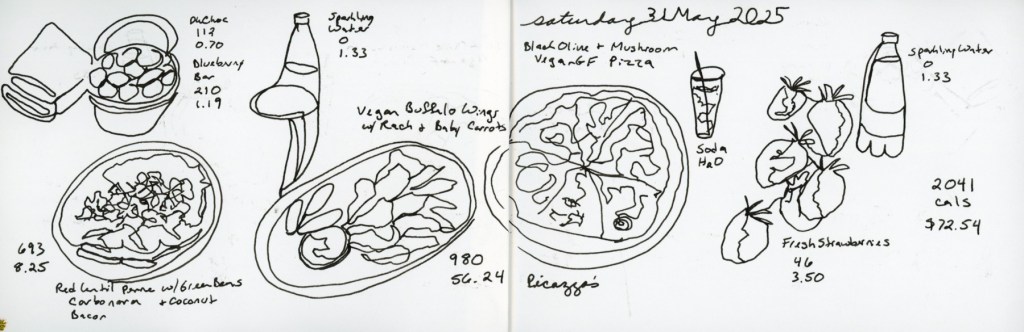 DkChoc
112
0.70
Blueberry
Bar
210
1.19
Sparkling
Water
0
1.33
Vegan Buffalo Wings
w/ Rach + Baby Carrots
693
8.25
Red Lentil Penne w/ Green Beans
Carbonara + Coconut
Bacon
980
56.24
Saturday 31 May 2025
Black Olive + Mushroom
Vegan GF Pizza
Soda
H2O
Sparkling Water
0
1.33
2041
cals
$72.54
Fresh Strawberries
46
3.50
Picazzo's